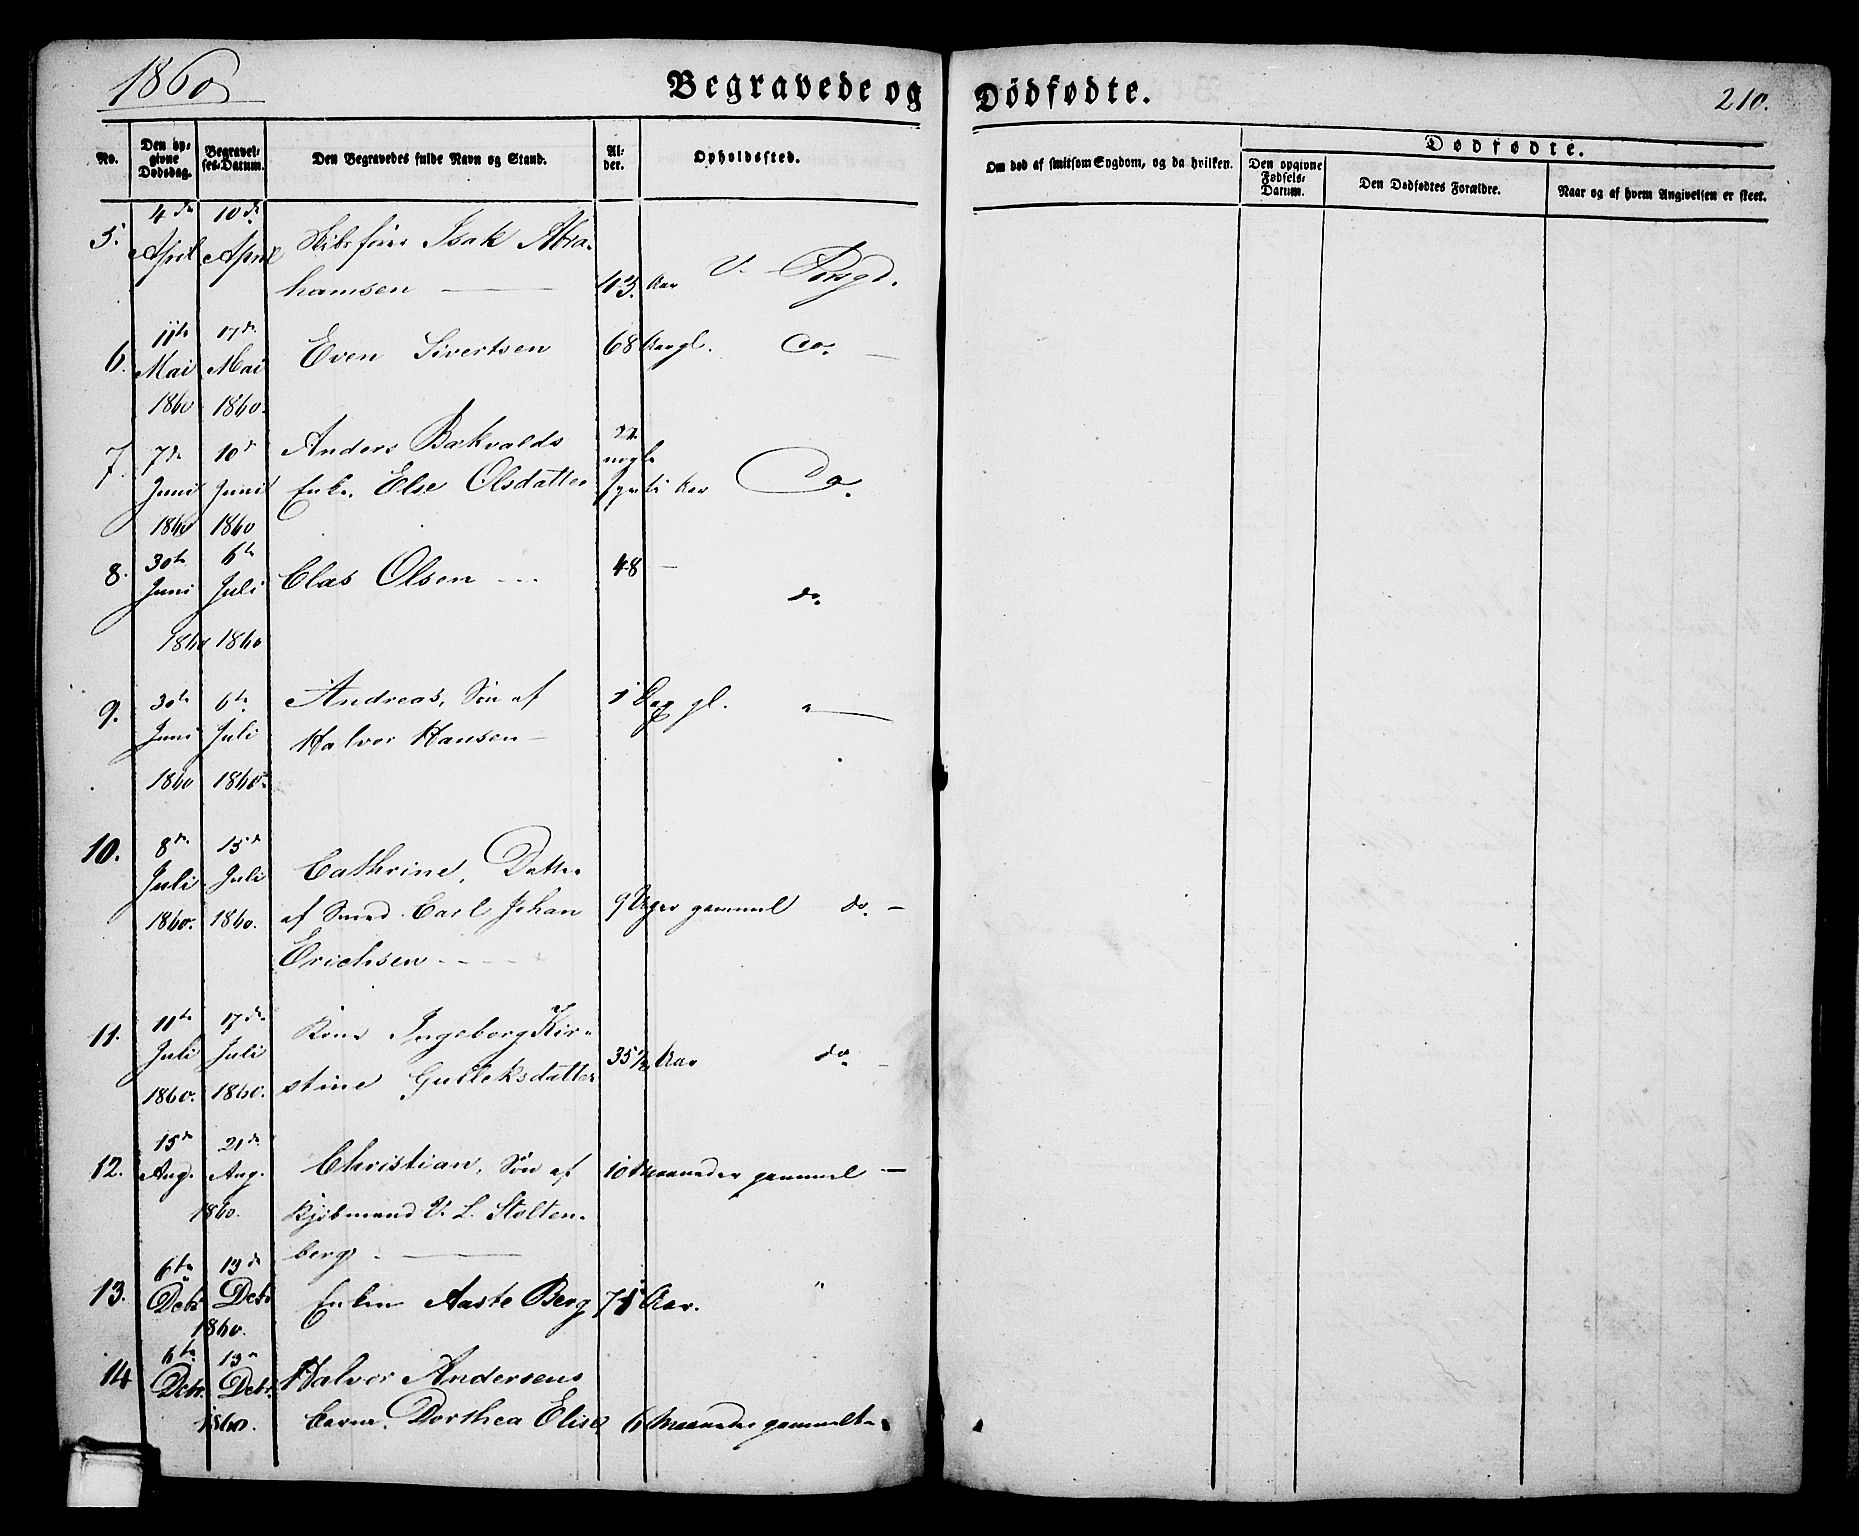 1860
Begravede og Dødfødte.
210.
No.
Den op-
givne
Dødsdag.
Begravel-
ses-Datum.
Den Begravedes fulde Navn og Stand.
Al-
der.
Opholdssted.
Om død af smitsom Sygdom, og da hvilken.
Dødfødte.
Den opgivne
Fødsels-
Datum.
Den Dødfødtes Forældre.
Naar og af hvem Angivelsen er skeet.
5. 4de April 10de April Isak Abra-
hamsen 43. Aar V. Porsgd.
6. 11te Mai 1860 17de Mai 1860. Even Sivertsen 68 Aar gl. Do.
7. 7de Juni 1860 10de Juni 1860 Anders Bakvalds
Enke, Else Olsdatter nogle Aar Do.
8. 30te Juni 1860 6te Juli 1860 Clas Olsen 48 do.
9. 30te Juni 1860 6te Juli 1860. Andreas, Søn af
Halvor Hansen 1 Dag gl. "
10. 8de Juli 1860. 15de Juli 1860. Cathrine, Datter
af Smed Carl Johan
Erichsen 9 Uger gammel do.
11. 11te Juli 1860. 17de Juli 1860. Kone Ingeborg Kir-
stine Gulleksdatter 35 1/2 Aar do.
12. 15de Aug. 21de Aug. 1860. Christian, Søn af
Kjøbmand V. L. Stolten-
berg 10 Maaneder gammel
13. 6te Decbr 13de Decbr 1860. Enken Aaste Berg Aar. "
14 6te Decbr. 13de Decbr. 1860. Halvor Andersens
Barn, Dorthea Elise 6 Maaneder gammelt